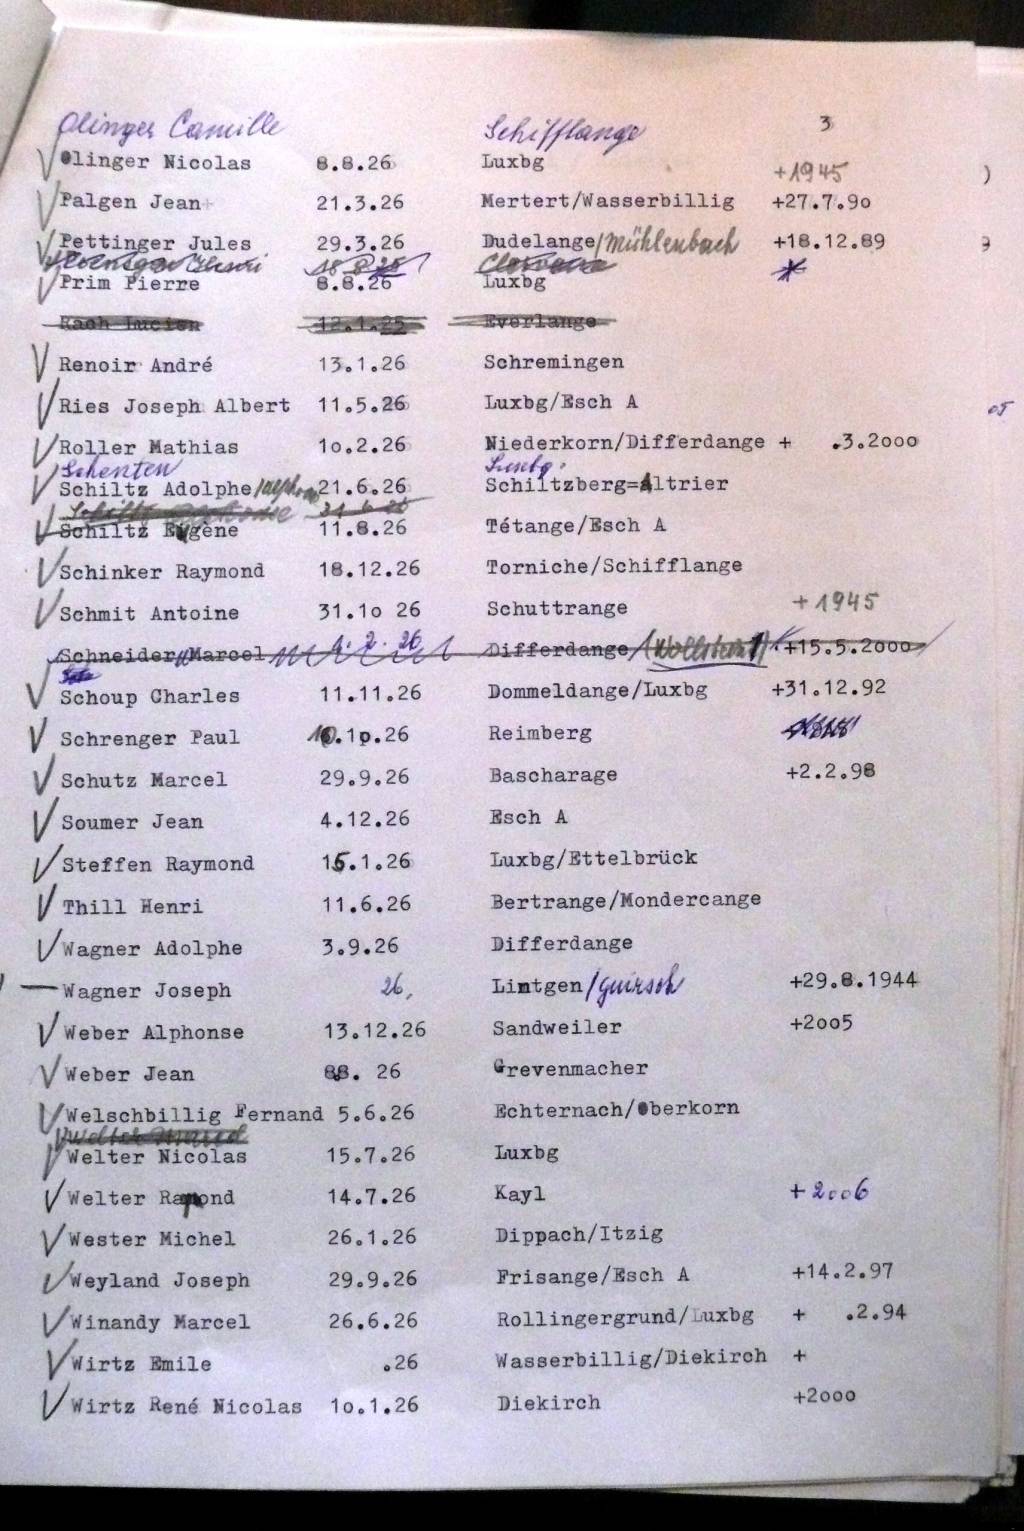 Olinger Camille Schifflange 3
Olinger Nicolas 8.8.26 Luxbg +1945
Palgen Jean 21.3.26 Mertert/Wasserbillig +27.7.9o
Pettinger Jules 29.3.26 Dudelange/Mühlenbach +18.12.89
Prim Pierre 8.8.26 Luxbg
Rach Lucien 12.1.25 Everlange
Renoir André 13.1.26 Schremingen
Ries Joseph Albert 11.5.26 Luxbg/Esch A
Roller Mathias 1o.2.26 Niederkorn/Differdange + .3.2ooo
Schenten Luxbg.
Schiltz Adolphe/Alphonse 21.6.26 Schiltzberg=Altrier
Schiltz Alphonse 21.6.26
Schiltz Eugène 11.8.26 Tétange/Esch A
Schinker Raymond 18.12.26 Torniche/Schifflange
Schmit Antoine 31.1o 26 Schuttrange +1945
Schneider Marcel 1.2.26 Differdange +15.5.2ooo
Schoup Charles 11.11.26 Dommeldange/Luxbg +31.12.92
Schrenger Paul 10.1o.26 Reimberg
Schutz Marcel 29.9.26 Bascharage +2.2.98
Soumer Jean 4.12.26 Esch A
Steffen Raymond 15.1.26 Luxbg/Ettelbrück
Thill Henri 11.6.26 Bertrange/Mondercange
Wagner Adolphe 3.9.26 Differdange
Wagner Joseph 26, Lintgen/Guirsch +29.8.1944
Weber Alphonse 13.12.26 Sandweiler +2oo5
Weber Jean 26 Grevenmacher
Welschbillig Fernand 5.6.26 Echternach/Oberkorn
Welter Marcel
Welter Nicolas 15.7.26 Luxbg
Welter Raymond 14.7.26 Kayl +2006
Wester Michel 26.1.26 Dippach/Itzig
Weyland Joseph 29.9.26 Frisange/Esch A +14.2.97
Winandy Marcel 26.6.26 Rollingergrund/Luxbg + .2.94
Wirtz Emile .26 Wasserbillig/Diekirch +
Wirtz René Nicolas 1o.1.26 Diekirch +2ooo